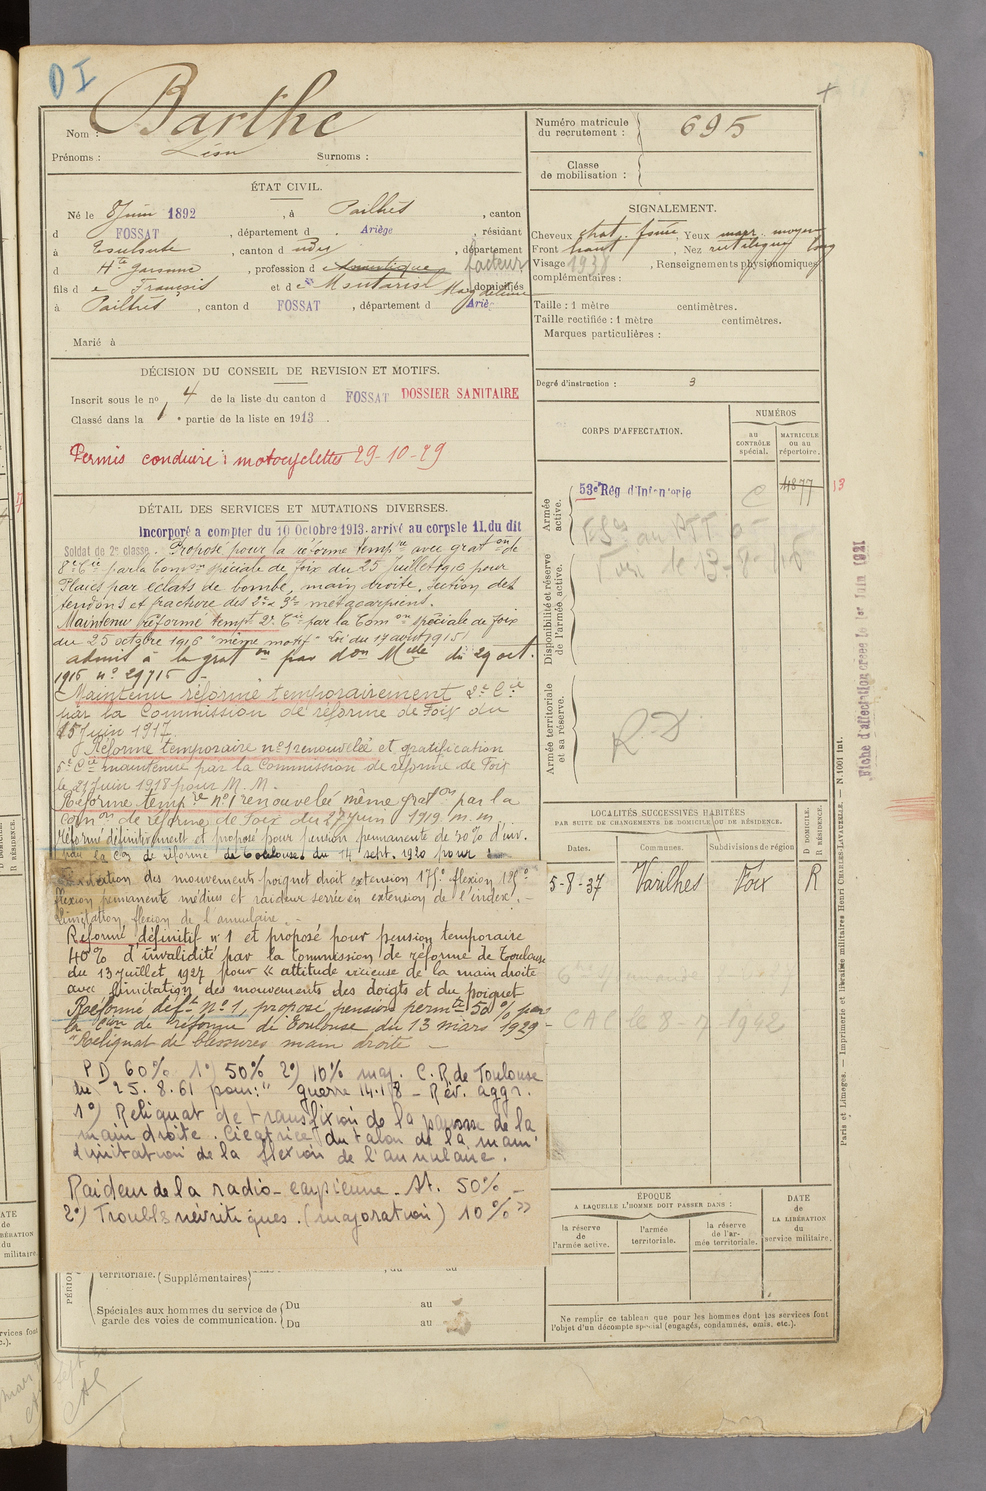 D I
Nom : Barthe
Prénoms : Léon Surnoms :
Numéro matricule
du recrutement : 695
Classe
de mobilisation :
ÉTAT CIVIL.
Né le 8 Juin 1892, à Pailhès, canton
d FOSSAT, département d Ariège, résidant
à, canton d, département
d Hte Garonne, profession d facteur
fils d e François et d e Magdeleine, domiciliés
à Pailhès, canton d FOSSAT, département d Ariè
Marié à
SIGNALEMENT.
Cheveux chat. foncé, Yeux marr. moyen
Front haut, Nez rectiligne long
Visage 1938, Renseignements physionomiques
complémentaires :
Taille : 1 mètre centimètres.
Taille rectifiée : 1 mètre centimètres.
Marques particulières :
Degré d'instruction : 3
DÉCISION DU CONSEIL DE REVISION ET MOTIFS.
Inscrit sous le no 4 de la liste du canton d FOSSAT DOSSIER SANITAIRE
Classé dans la 1 e partie de la liste en 1913.
Permis conduire : motocyclettes 29-10-29
DÉTAIL DES SERVICES ET MUTATIONS DIVERSES.
Incorporé a compter du 10 Octobre 1913. arrivé au corps le 11. du dit
Soldat de 2e classe. Proposé pour la réforme tempre avec graton de
8e Cie par la Comon spéciale de Foix du 25 juillet 1916 pour
Plaies par éclats de bombe, main droite, section des
tendons et fracture des 2e & 3e métacarpiens.
Maintenu réformé tempt 2e Cie par la Comon spéciale de Foix
du 25 octobre 1916 "même motif" Loi du 17 août 1915
admis à la graton par don Melle du 29 oct.
1916 no 29716
Maintenu réformé temporairement 2e Cie
par la Commission de réforme de Foix du
15 Juin 1917.
Réforme temporaire no 1 renouvelée et gratification
Cie maintenue par la Commission de réforme de Foix
le 21 Juin 1918 pour M. M.
Réforme tempre no 1 renouvelée même graton par la
Comon de réforme de Foix du 27 juin 1919. m. m.
Réformé définitivement et proposé pour pension permanente de 30% d'inv.
par la Con de réforme de Toulouse du 14 sept. 1920 pour
Limitation des mouvements poignet droit extension 175° flexion
flexion permanente médius et raideur serrée en extension de l'index.
Limitation flexion de l'annulaire.
Réformé définitif no 1 et proposé pour pension temporaire
40% d'invalidité par la Commission de réforme de Toulouse
du 13 juillet 1927 pour « attitude vicieuse de la main droite
avec limitation des mouvements des doigts et du poignet
Réformé déft No 1, proposé pension permte 50% par
la Con de réforme de Toulouse du 13 mars 1929 -
"Reliquat de blessures main droite -
PD 60% 1°) 50% 2°) 10% maj. C.R. de Toulouse
du 25.8.61 pour : " guerre 14.18 - Rév. aggr.
1°) Reliquat de transfixion de la paume de la
main droite. Cicatrice du talon de la main.
Limitation de la flexion de l'annulaire.
Raideur de la radio-carpienne. At. 50% -
2°) Troubles névritiques. (majoration) 10% »
territoriale. (Supplémentaires) , du au
Spéciales aux hommes du service de Du au
garde des voies de communication. Du au
CORPS D'AFFECTATION.
NUMÉROS
au
CONTRÔLE
spécial.
MATRICULE
ou au
répertoire.
Armée
active.
53e Rég d'Infanterie C 4877 13
Disponibilité et réserve
de l'armée active.
Armée territoriale
et sa réserve.
R-D
LOCALITÉS SUCCESSIVES HABITÉES
PAR SUITE DE CHANGEMENTS DE DOMICILE OU DE RÉSIDENCE.
Dates. Communes. Subdivisions de région
D DOMICILE.
R RÉSIDENCE.
5-8-37 Varilhes Foix R
CAC le 8-7-1942
ÉPOQUE
A LAQUELLE L'HOMME DOIT PASSER DANS :
la réserve
de
l'armée active.
l'armée
territoriale.
la réserve
de l'ar-
mée territoriale.
DATE
de
LA LIBÉRATION
du
service militaire.
Ne remplir ce tableau que pour les hommes dont les services font
l'objet d'un décompte spécial (engagés, condamnés, omis, etc.).
Fiche d'affectation créée le 1er Juin 1921
Paris et Limoges. — Imprimerie et librairie militaires Henri CHARLES-LAVAUZELLE. — N. 1001 Int.
CAC